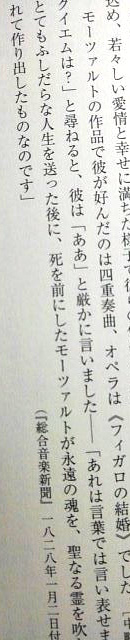 込め、若々しい愛情と幸せに満ちた様子で
モーツァルトの作品で彼が好んだのは四重奏曲、オペラは《フィガロの結婚》でした
クイエムは?」と尋ねると、彼は「ああ」と厳かに言いました――「あれは言葉では言い表せま
とてもふしだらな人生を送った後に、死を前にしたモーツァルトが永遠の魂を、聖なる霊を吹
れて作り出したものなのです」
(『総合音楽新聞』一八二八年一月二日付